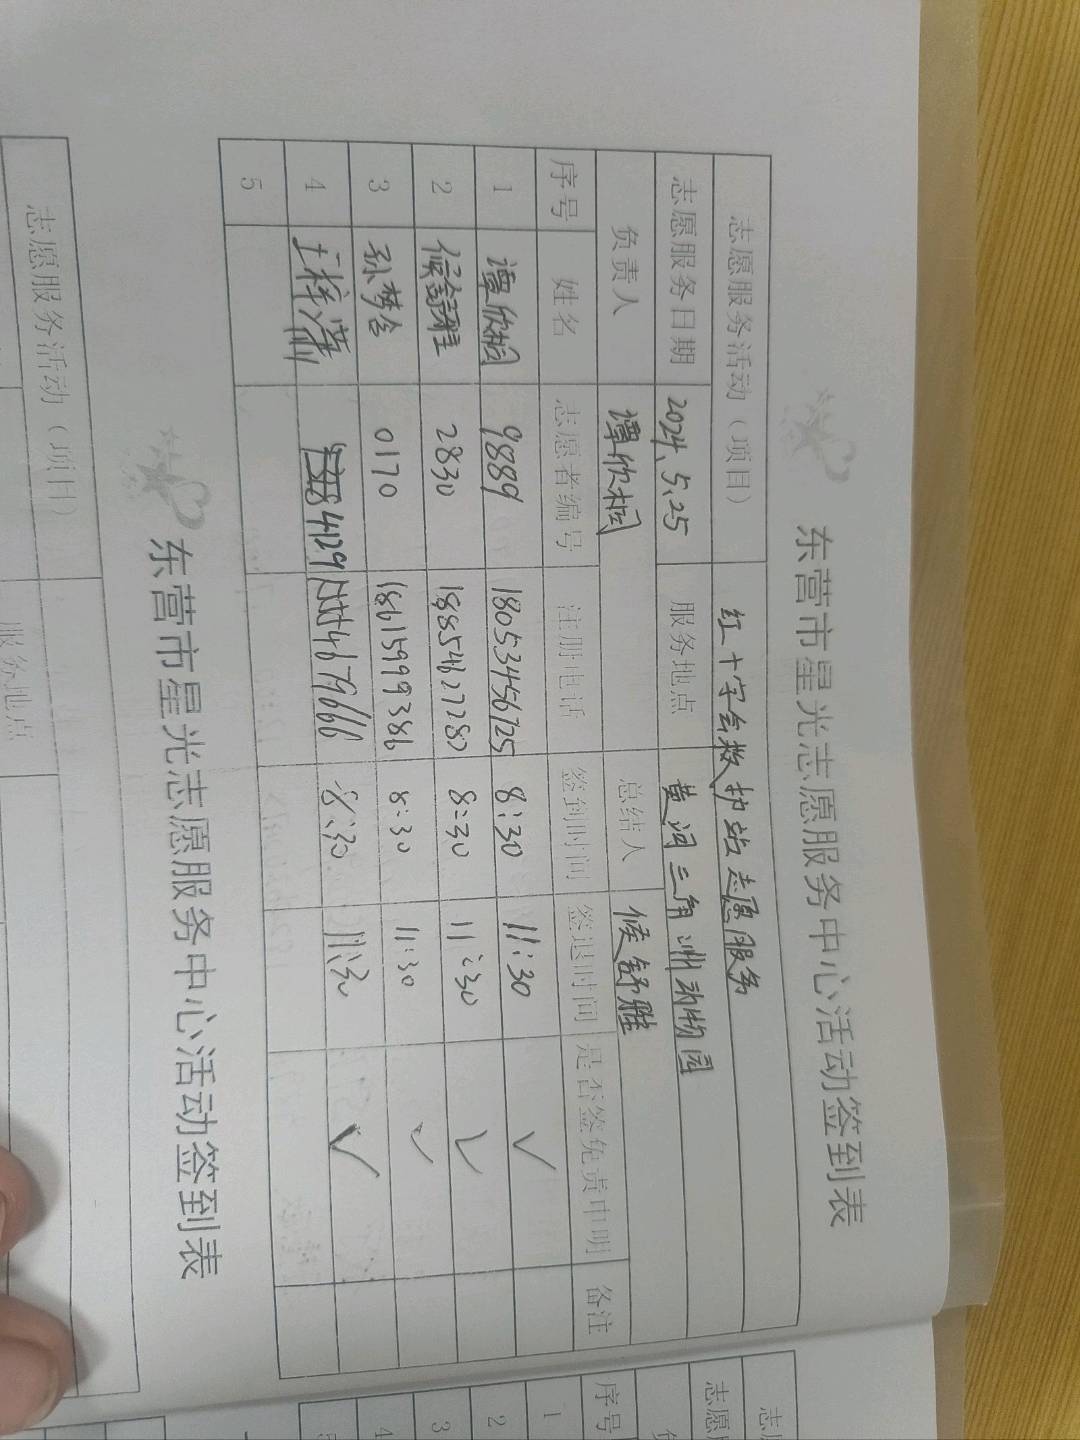 东营市星光志愿服务中心活动签到表
志愿服务活动（项目） 红十字会救护站志愿服务
志愿服务日期 2024.5.25 服务地点 黄河三角洲动物园
负责人 谭欣桐 总结人 候舒雅
序号 姓名 志愿者编号 注册电话 签到时间 签退时间 是否签免责申明 备注
1 谭欣桐 9889 18053456725 8:30 11:30 ✓
2 候舒雅 2830 18854627282 8:30 11:30 ✓
3 孙梦含 0170 18615999386 8:30 11:30 ✓
4 4129 4679666 8:30 11:30 ✓
5
东营市星光志愿服务中心活动签到表
志愿服务活动（项目）
服务地点
序号
1
2
3
4